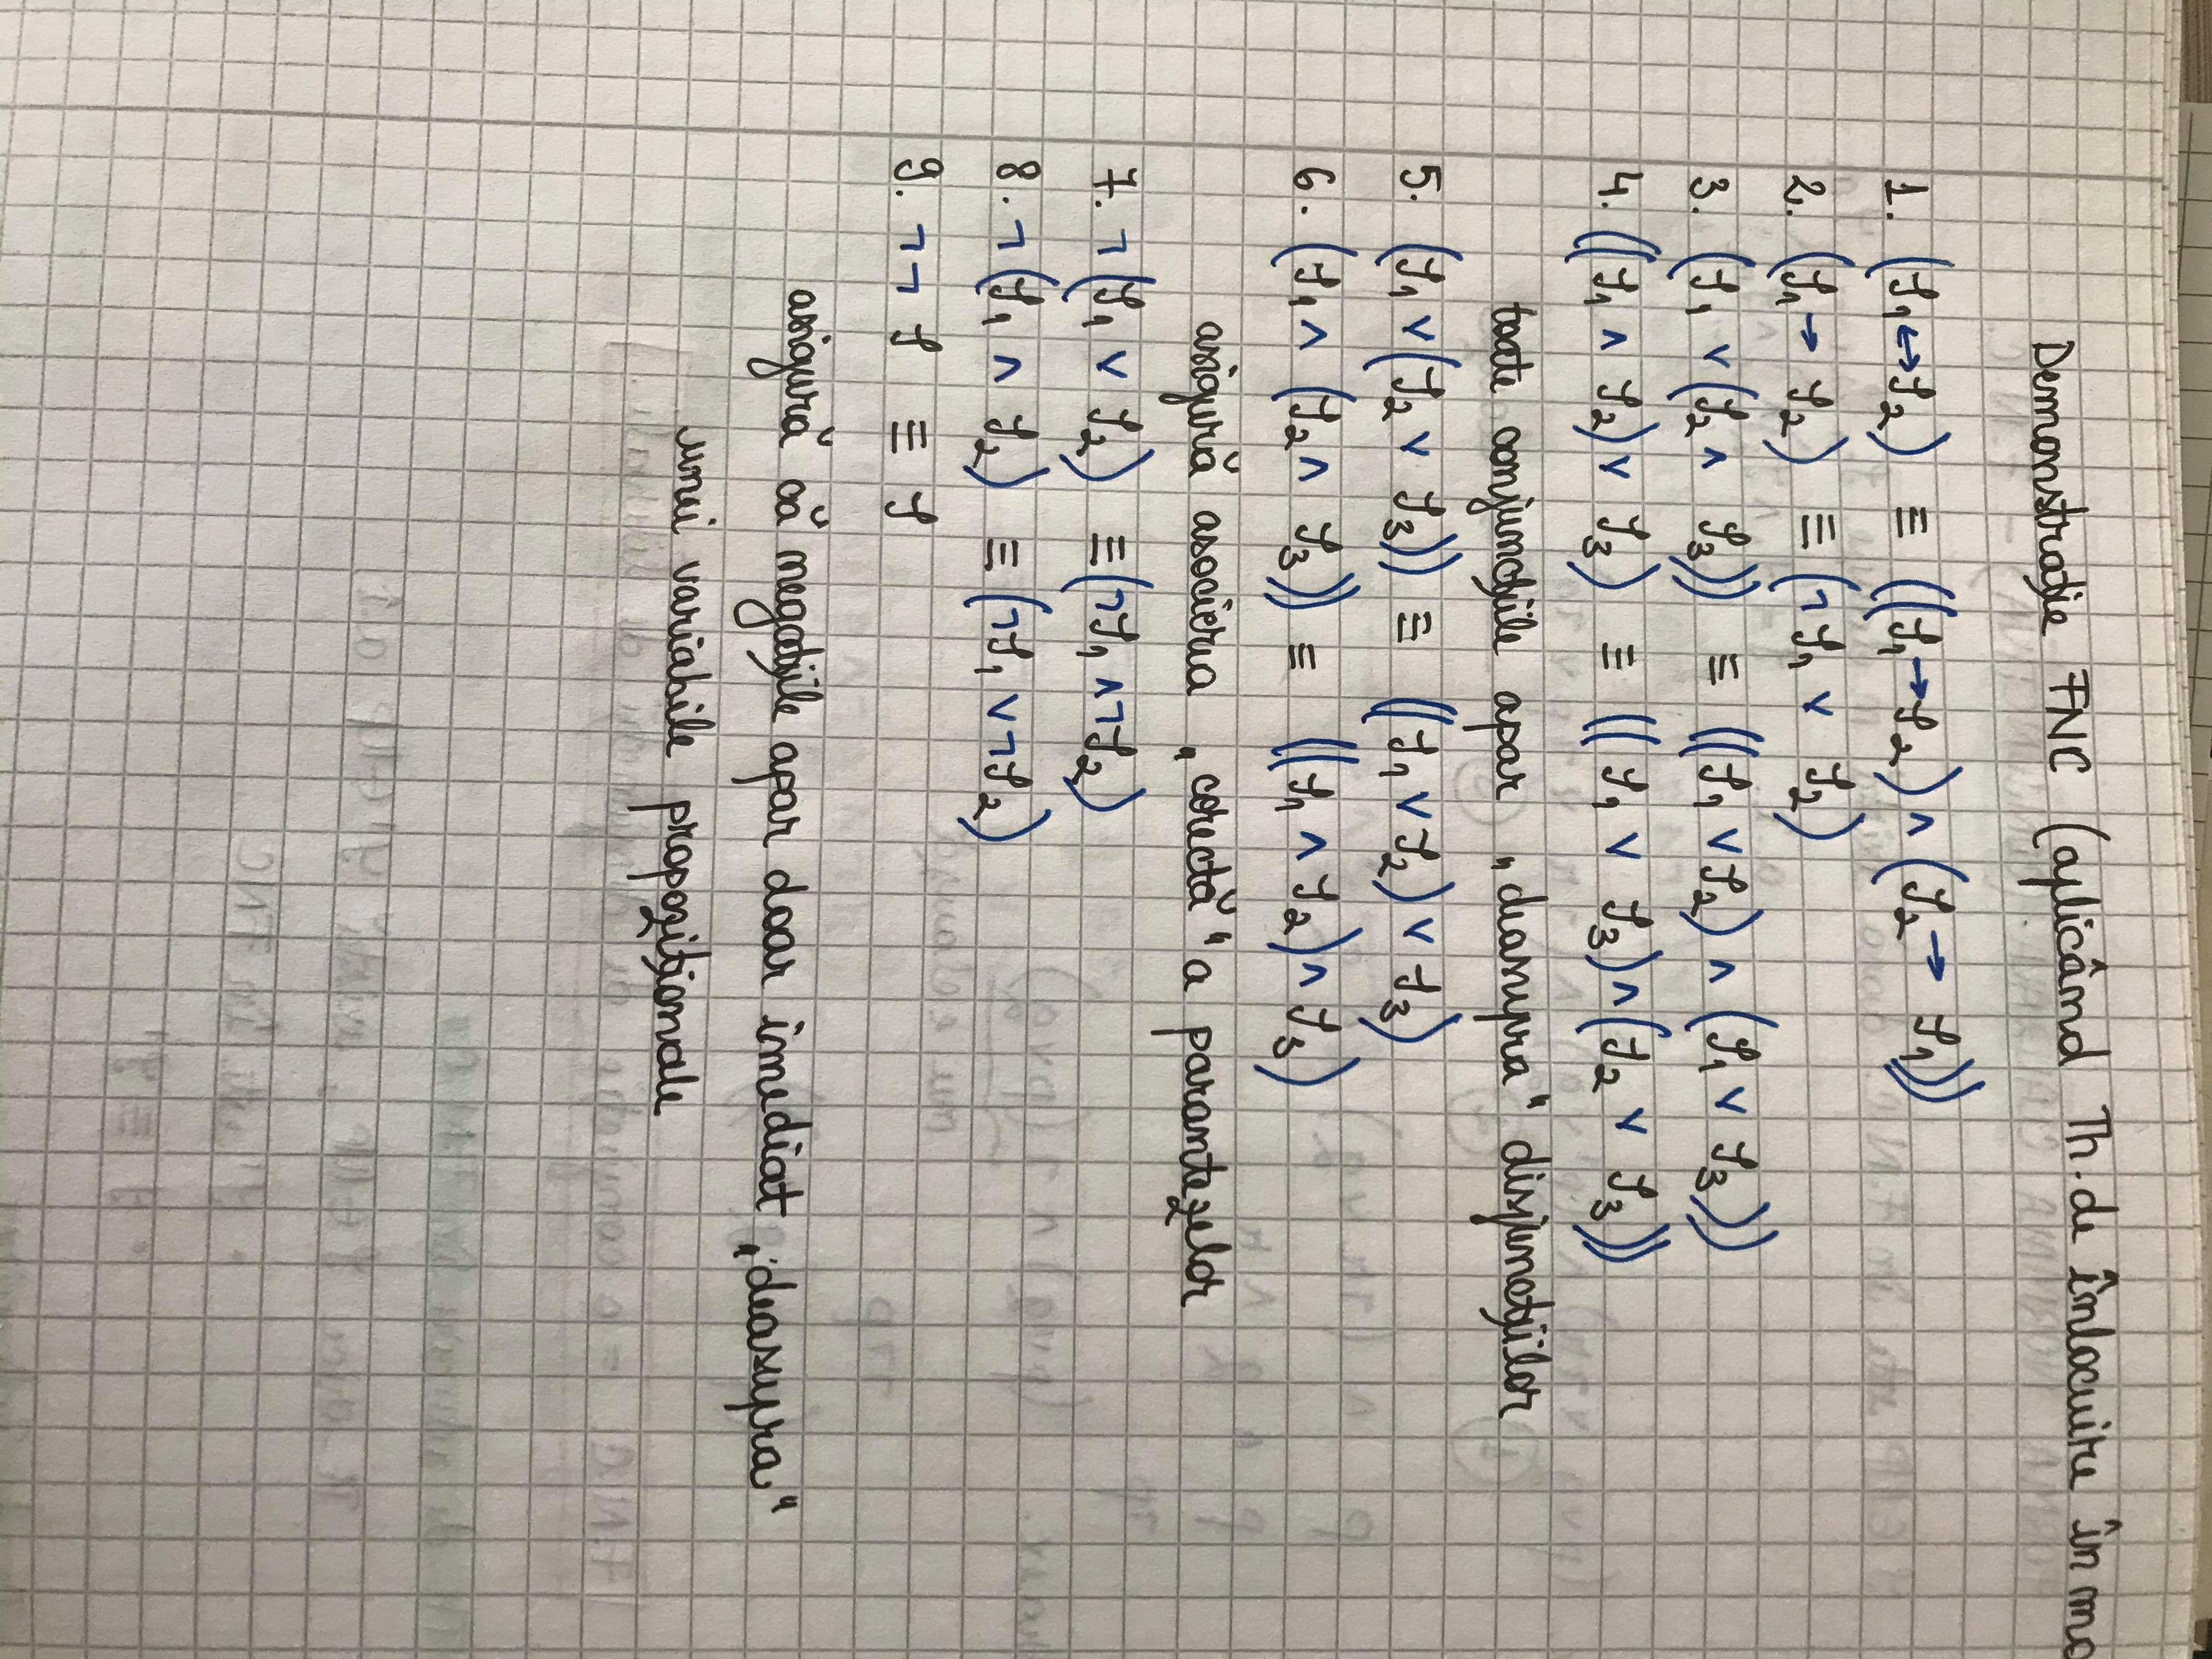 Demonstrație FNC (aplicând Th. de înlocuire în mo
1. (φ₁ ↔ φ₂) ≡ ((φ₁ → φ₂) ∧ (φ₂ → φ₁))
2. (φ₁ → φ₂) ≡ (¬φ₁ ∨ φ₂)
3. (φ₁ ∨ (φ₂ ∧ φ₃)) ≡ ((φ₁ ∨ φ₂) ∧ (φ₁ ∨ φ₃))
4. ((φ₁ ∧ φ₂) ∨ φ₃) ≡ ((φ₁ ∨ φ₃) ∧ (φ₂ ∨ φ₃))
toate conjuncțiile apar „deasupra" disjuncțiilor
5. (φ₁ ∨ (φ₂ ∨ φ₃)) ≡ ((φ₁ ∨ φ₂) ∨ φ₃)
6. (φ₁ ∧ (φ₂ ∧ φ₃)) ≡ ((φ₁ ∧ φ₂) ∧ φ₃)
asigură asocierea „corectă" a parantezelor
7. ¬(φ₁ ∨ φ₂) ≡ (¬φ₁ ∧ ¬φ₂)
8. ¬(φ₁ ∧ φ₂) ≡ (¬φ₁ ∨ ¬φ₂)
9. ¬¬φ ≡ φ
asigură că negațiile apar doar imediat „deasupra"
unei variabile propoziționale